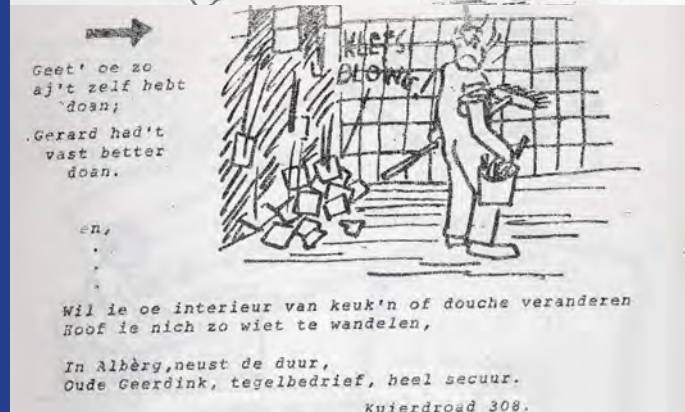 KLETS
BLOWG!
Geet' oe zo
aj't zelf hebt
doan;
Gerard had't
vast better
doan.
en,
.
.
.
Wil ie oe interieur van keuk'n of douche veranderen
Hoof ie nich zo wiet te wandelen,
In Albèrg,neust de duur,
Oude Geerdink, tegelbedrief, heel secuur.
Kuierdroad 308.